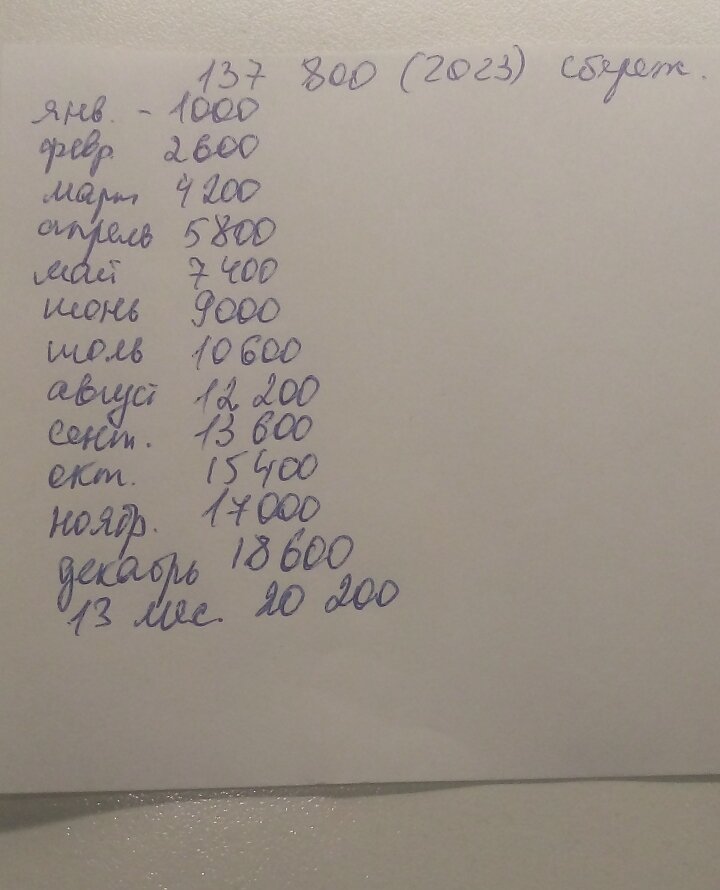 137 800 (2023) сбереж.
янв. - 1000
февр. 2600
март 4200
апрель 5800
май 7400
июнь 9000
июль 10600
август 12 200
сент. 13 600
окт. 15400
ноябр. 17000
декабрь 18600
13 мес. 20 200